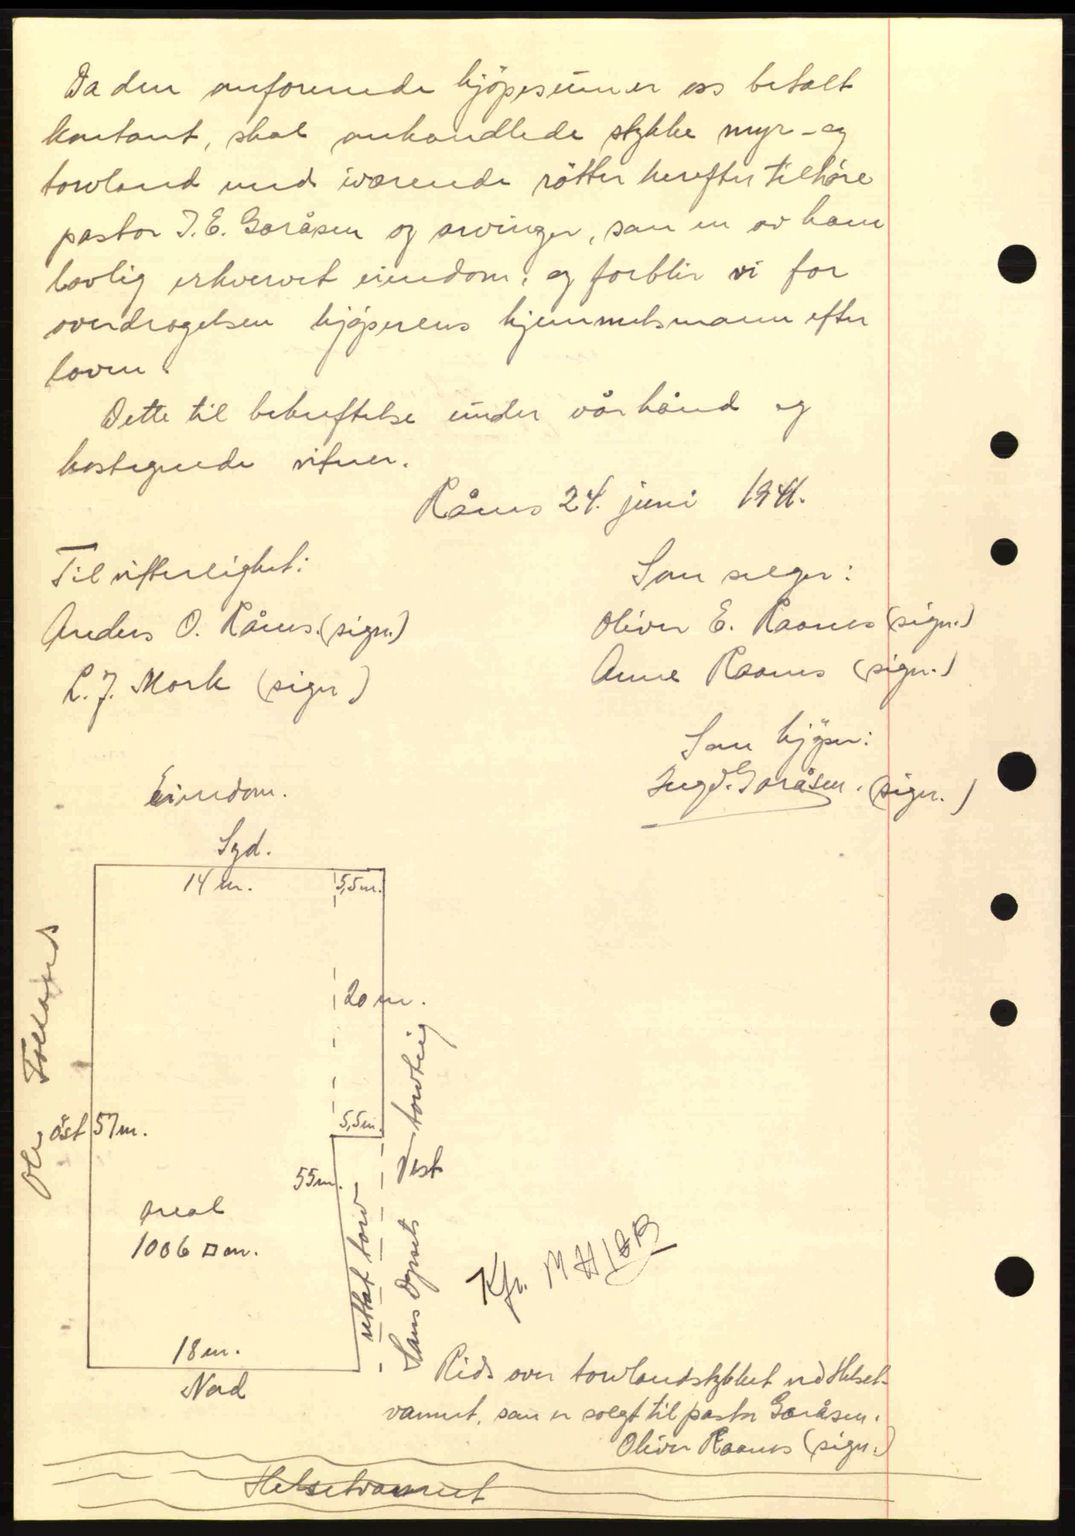 Da den anförende kjöpesum er oss betalt
kontant, skal omhandlede stykke myr- og
torvland med iværende rötter herefter tilhöre
pastor I. E. Goråsen og arvinger, som en av ham
lovlig erhvervet eiendom; og forblir vi for
overdragelsen kjöperens hjemmelsmann efter
loven.
Dette til bekreftelse under vår hånd og
hostegnede vitner.
Rånes 24. juni 1941.
Til vitterlighet:
Anders O. Rånes. (sign.)
L. J. Mork (sign)
Som selger:
Oliver E. Raanes (sign.)
Anne Raanes (sign.)
Som kjöper:
Goråsen. (sign.)
Eiendom.
Syd.
14 m. 5,5m.
20 m.
Ole Folland
öst 57m.
5,5m.
55m.
Vest
torvteig
Hans
areal
1006 □ m.
torv
Kfr.
18 m.
Nord
Rids over torvlandstykket ved Helset-
vannet, som er solgt til pastor Goråsen.
Oliver Raanes (sign.)
Helsetvannet